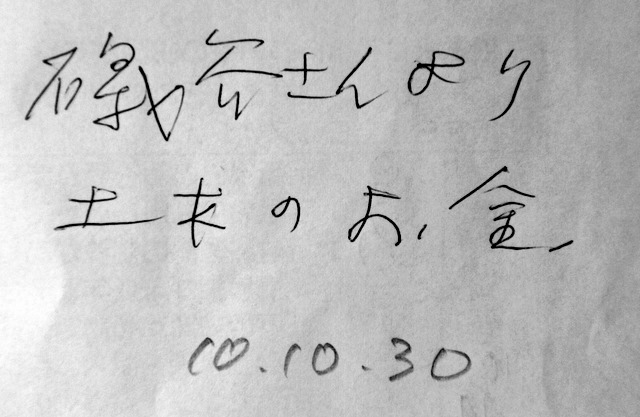 磯谷さんより
土木のお金
10.10.30